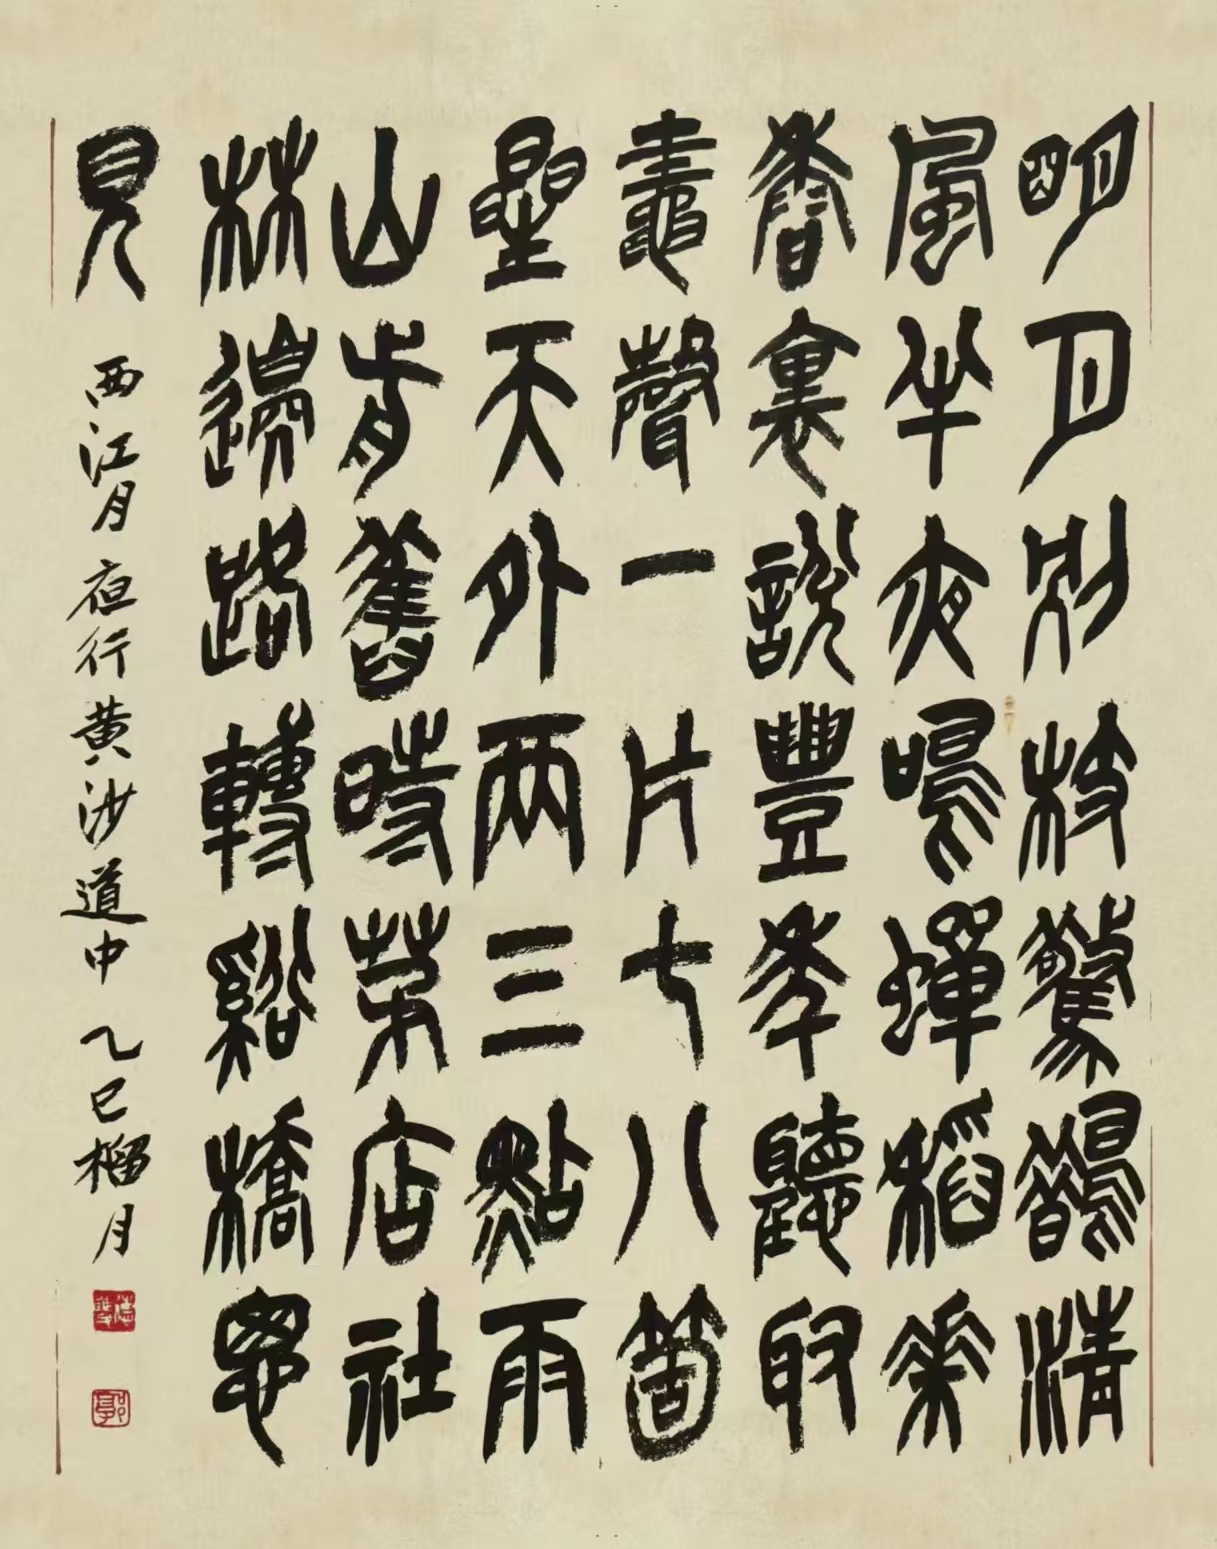 明月別枝驚鵲清
風半夜鳴蟬稻華
香裏說豐年聽取
鼃聲一片七八箇
星天外兩三點雨
山前舊時茅店社
林邊路轉谿橋忽
見 西江月 夜行黄沙道中 乙巳榴月